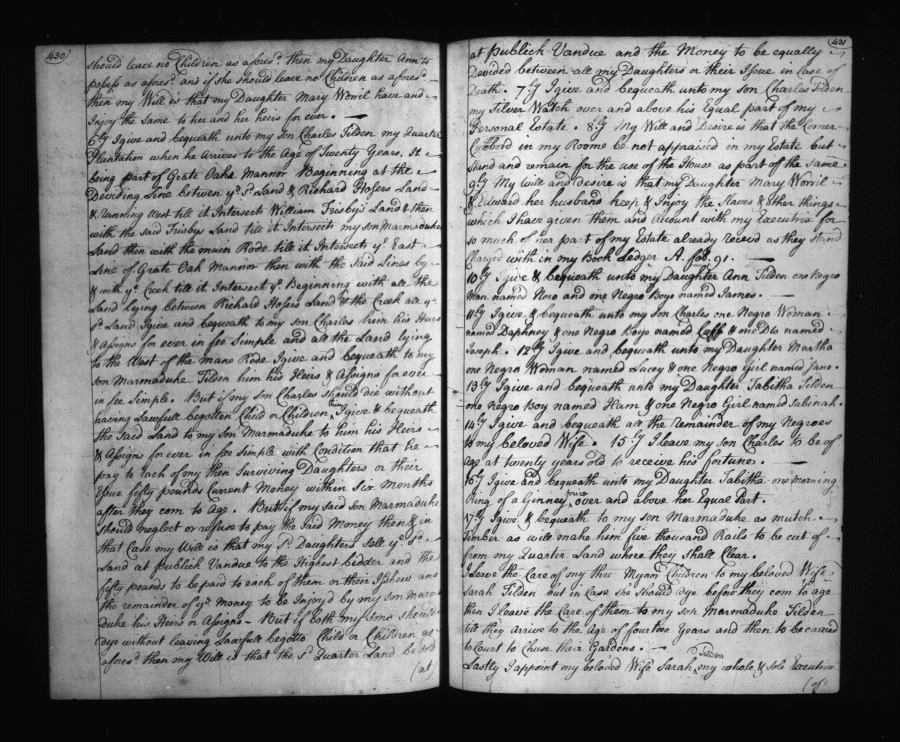 430
should leave no Children as afores.d then my Daughter Ann to
posess as afores.d and if she should leave no Children as afores.d
then my Will is that my Daughter Mary Worril have and
Injoy the Same to her and her heirs for ever.
6ly I give and bequeath unto my Son Charles Tilden my Quarter
Plantation when he arrives to the Age of Twenty Years, It
being part of Grate Oake Mannor Beginning at the
Deviding Line betwen ye sd. Land & Richard Hosers Land
& Running West till it Intersects William Frisbys Land & then
with the said Frisbys Land till it Intersects my son Marmaduke
Land then with the main Rode till it Intersects ye East
Line of Grate Oak Mannor then with the Said Lines by
& with ye Creek till it Intersect ye Beginning with all the
Land lying between Richard Hosers Land & the Creek all ye
sd. Land I give and bequeath to my son Charles him his Heirs
& Assigns for ever in fee Simple and all the Land lying
to the West of the mane Rode I give and bequeath to my
son Marmaduke Tilden him his Heirs & Assigns for ever
in fee Simple. But if my son Charles should die without
having Lawfull begotten Child or Children I give & bequeath
the Said Land to my son Marmaduke to him his Heirs
& Assigns for ever in fee simple with Condition that he
pay to each of my then Surviving Daughters or their
Issue fifty pounds Current Money within Six Months
after they com to Age. But if my said son Marmaduke
should neglect or refuse to pay the Said Money then & in
that Case my Will is that my sd. Daughters Sell ye sd.
Land at Publick Vandue to the Highest bidder and the
fifty pounds to be paid to each of them or their Isshew and
the remainder of ye Money to be Injoy'd by my son Marma
duke his Heirs or Assigns - But if both my sons should
dye without leaving Lawfull begotto Child or Children as
afores.d then my Will is that the sd. Quarter Land be sold
(at)
431
at Publick Vandue and the Money to be equally
Devided between all my Daughters or their Issue in Case of
Death. 7ly I give and bequeath unto my son Charles Tilden
my Silver Watch over and above his Equal part of my
Personal Estate. 8ly My Will and Desire is that the Corner
Cubbord in my Roome be not appraised in my Estate but
Stand and remain for the use of the House as part of the same.
9ly My will and desire is that my Daughter Mary Worril
& Edward her husband keep & Injoy the Slaves & Other things
which I have given them and Account with my Executrix for
so much of her part of my Estate already Receivd as they stand
Charged with in my Book Ledger A. fol. 91.
10ly I give & bequeath unto my Daughter Ann Tilden one Negro
Man named Nero and one Negro Boye named James.
11ly I give & bequeath unto my Son Charles one Negro Woman
named Daphney & one Negro Boye named Caff & one Do. named
Joseph. 12ly I give and bequeath unto my Daughter Martha
one Negro Woman named Lucey & one Negro Girl named Jane.
13ly I give and bequeath unto my Daughter Tabitha Tilden
one Negro Boy named Ham & one Negro Girl named Sabinah.
14ly I give and bequeath all the Remainder of my Negroes
to my beloved Wife. 15ly I leave my son Charles to be of
Age at twenty years old to receive his fortune.
16ly I give and bequeath unto my Daughter Tabitha one morning
Ring of a Ginney price over and above her Equal Part.
17ly I give & bequeath to my son Marmaduke as mutch
Timber as will make him five thousand Rails to be cut of
from my Quarter Land where they Shall Clear.
I leave the Care of my thre Mynor Children to my beloved Wife
Sarah Tilden but in Case she should dye before they com to age
then I leave the Care of them to my son Marmaduke Tilden
till they arrive to the Age of fourteen Years and then to be caried
to Court to Chuse their Gardens.
Lastly I appoint my beloved Wife Sarah Tilden my whole & sole Executrix
(of)